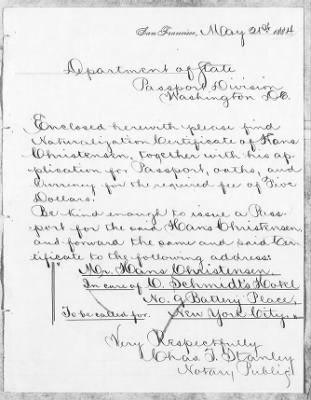 San Francisco, May 21st, 1884
Department of State
Passport Division
Washington D.C.
Enclosed herewith please find
Naturalization Certificate of Hans
Christensen, together with his ap-
plication for Passport, oaths, and
currency for the required fee of Five
Dollars.
Be kind enough to issue a Pass-
port for the said Hans Christensen,
and forward the same and said Cer-
tificate to the following address:
Mr. Hans Christensen,
In care of C. Schmidt's Hotel
No. 9 Battery Place,
To be called for. New York City.
Very Respectfully
Chas. T. Stanley
Notary Public